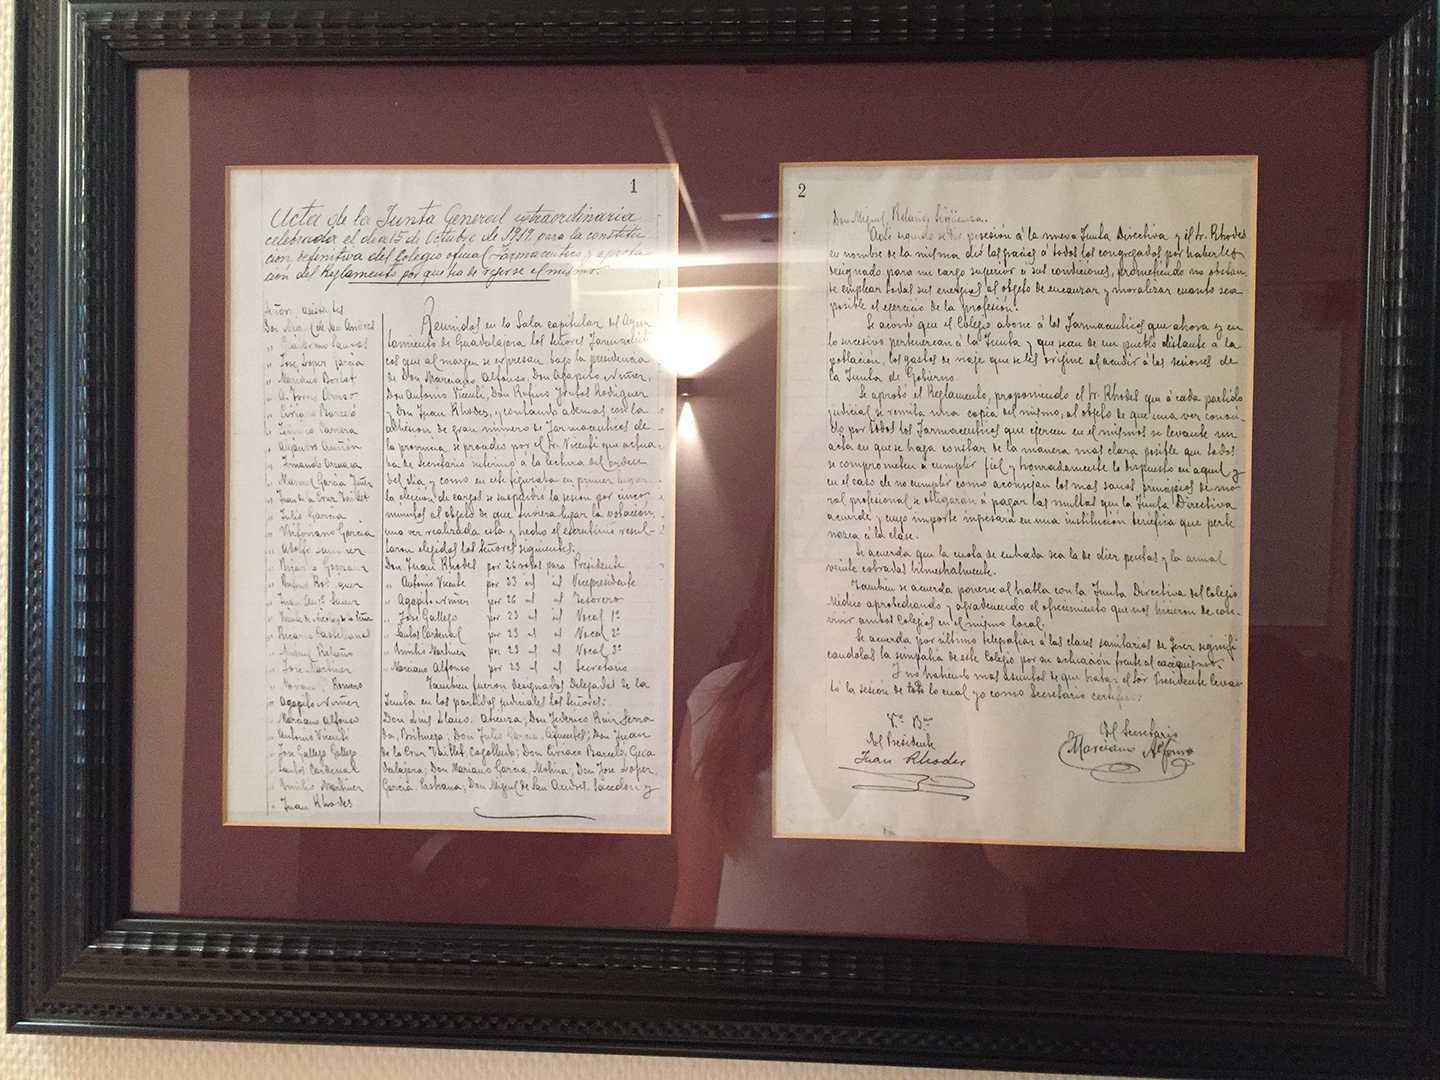 1
Acta de la Junta General extraordinaria
celebrada el dia 15 de Octubre de 1919, para la constitu
cion definitiva del Colegio oficial Farmaceutico y aproba
ción del Reglamento por que ha de regirse el mismo.
Señores asistentes
Don Miguel de San Andres
" Guillermo
" Jose Lopez Garcia
" Mariano
" A.
" Ciriaco Barceló
" Federico Carnera
" Alejandro Auñón
" Fernando
" Manuel Garcia
" Juan de la Cruz Taillet
" Julio Garcia
" Victoriano Garcia
" Adolfo Sanchez
" Ricardo Gonzalez
" Rufino Rodriguez
" Juan Sanz
" Vicente de Nicolas de la Peña
" Ricardo Castellanos
" Miguel Relaño
" Jose Martinez
" Mariano J. Romero
" Agapito Nuñez
" Marciano Alfonso
" Antonio Vicenti
" Jose Gallego Gallego
" Santos Cardenal
" Emilio Martinez
" Juan Rhodes
Reunidos en la Sala capitular del Ayun
tamiento de Guadalajera los señores Farmacéuti
cos que al margen se expresan bajo la presidencia
de Don Marciano Alfonso, Don Agapito Nuñez,
Don Antonio Vicenti, Don Rufino Rodriguez
y Don Juan Rhodes, y contando además con la
adhesion de gran número de Farmaceuticos de
la provincia, se procedió por el Sr. Vicenti que actua
ba de Secretario interino á la lectura del orden
del dia y como en este figuraba en primer lugar
la elección de cargos se suspendió la sesion por cinco
minutos al objeto de que tuviera lugar la votación,
una vez realizada esta y hecho el escrutinio resul
taron elegidos los señores siguientes:
Don Juan Rhodes por 26 votos para Presidente
" Antonio Vicente por 23 id id Vicepresidente
" Agapito Nuñez por 26 id id Tesorero
" Jose Gallego por 23 id id Vocal 1º
" Santos Cardenal por 23 id id Vocal 2º
" Emilio Martinez por 23 id id Vocal 3º
" Marciano Alfonso por 23 id id Secretario
Tambien fueron designados Delegados de la
Junta en los partidos judiciales los señores:
Don Luis Llano, Atienza; Don Federico Ruiz Serra
da, Brihuega; Don Julio Garcia, Cifuentes; Don Juan
de la Cruz Taillet Cogolludo; Don Ciriaco Barceló, Gua
dalajera; Don Mariano Garcia, Molina; Don Jose Lopez
Garcia, Pastrana; Don Miguel de San Andres, Sacedon y
2
Don Miguel Relaño, Sigüenza.
Acto seguido se dió posesión á la nueva Junta Directiva y el Sr. Rhodes
en nombre de la misma dió las gracias á todos los congregados por haberles
designado para un cargo superior á sus condiciones, prometiendo no obstan
te emplear todas sus energias al objeto de encauzar y moralizar cuanto sea
posible el ejercicio de la profesión.
Se acordó que el Colegio abone á los Farmaceuticos que ahora y en
lo sucesivo pertenezcan á la Junta y que sean de un pueblo distante á la
población, los gastos de viaje que se les origine al acudir á las sesiones de
la Junta de Gobierno.
Se aprobó el Reglamento, proponiendo el Sr. Rhodes que á cada partido
judicial se remita una copia del mismo, al objeto de que una vez conoci
do por todos los Farmaceuticos que ejercen en el mismo se levante un
acta en que se haga constar de la manera mas clara posible que todos
se comprometen á cumplir fiel y honradamente lo dispuesto en aquel y
en el caso de no cumplir como aconsejan los mas sanos principios de mo
ral profesional se obligarán á pagar las multas que la Junta Directiva
acuerde y cuyo importe ingresará en una institución benéfica que perte
nezca á la clase.
Se acuerda que la cuota de entrada sea la de diez pesetas y la anual
veinte cobradas trimestralmente.
Tambien se acuerda ponerse al habla con la Junta Directiva del Colegio
Médico aprovechando y agradeciendo el ofrecimiento que nos hicieron de con-
vivir ambos Colegios en el mismo local.
Se acuerda por último telegrafiar á las clases sanitarias de Jerez signifi
candolas la simpatia de este Colegio por su actuación frente al caciquismo.
Y no habiendo mas asuntos de que tratar el Sor Presidente levan
tó la sesión de todo lo cual yo como Secretario certifico:
Vº Bno
Del Presidente
Juan Rhodes
Del Secretario
Marciano Alfonso